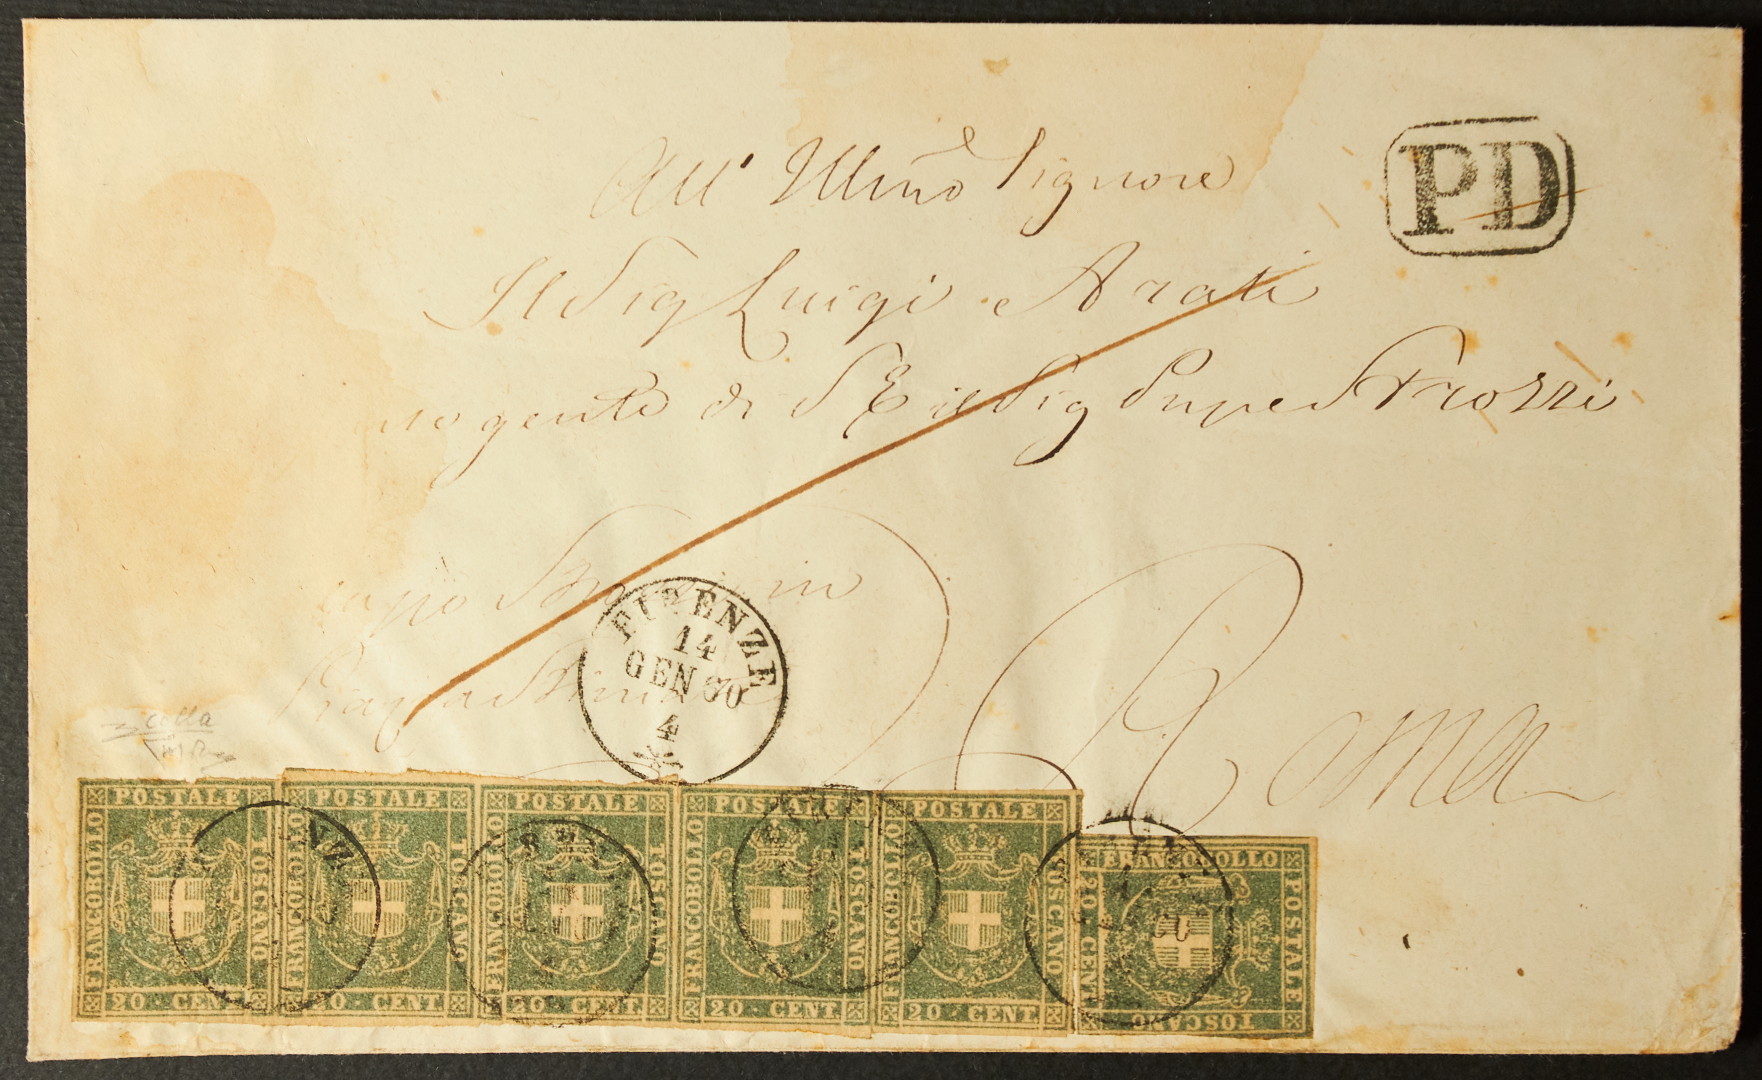 PD
All' Illmo Signore
Il Sig Luigi Arati
agente di S E il Sig Strozzi
capo
Piazza
Roma
FIRENZE
14
GEN 60
4
POSTALE
FRANCOBOLLO
TOSCANO
20 - CENT
POSTALE
FRANCOBOLLO
TOSCANO
20 - CENT.
POSTALE
FRANCOBOLLO
TOSCANO
20 - CENT.
POSTALE
FRANCOBOLLO
TOSCANO
20 - CENT.
POSTALE
FRANCOBOLLO
TOSCANO
20 - CENT.
FRANCOBOLLO
20 CENT
POSTALE
TOSCANO